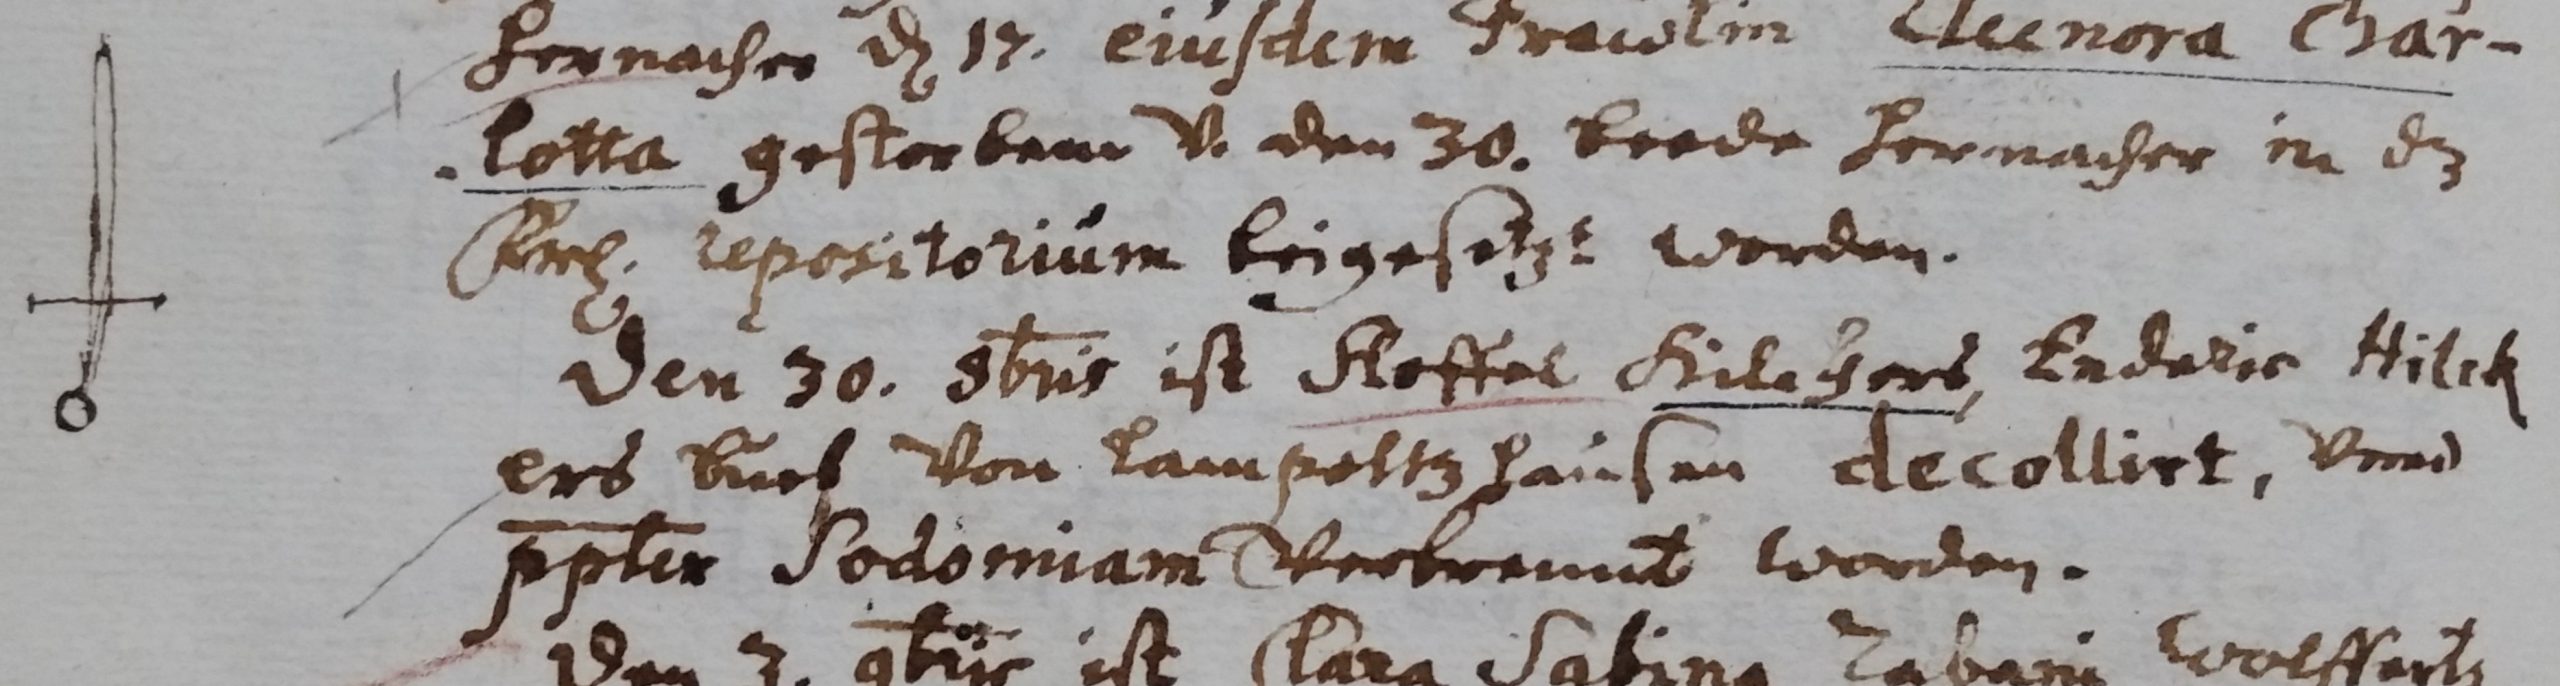 hernacher dz 17. eiúsdem Frewlin Eleenora Char-
lotta gestorbenn v. den 30. beede hernacher in dz
repositoriúm beigesetzt worden.
Den 30. 8bris ist Stoffel Hilckers, Enderis Hilck
ers von Lampeltzhaúsen decollirt, vnnd
ppter Sodomiam Verbrennt worden.
Den 3. 9bris ist Clara Sabina